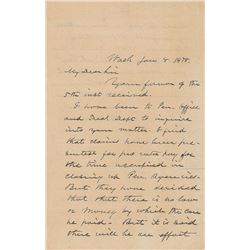 Wash Jan 8 1878.
My Dear Sir
Yours favor of the
5th inst received.
I have been to Pen. Office
and Treas Dept to inquire
into your matter. I find
that claims have been pre-
sented for pro rata pay for
the time occupied in
closing up Pen. Agencies.
But they have decided
that that there is no law
or money by which this can
be paid. But it is said
there will be an effort